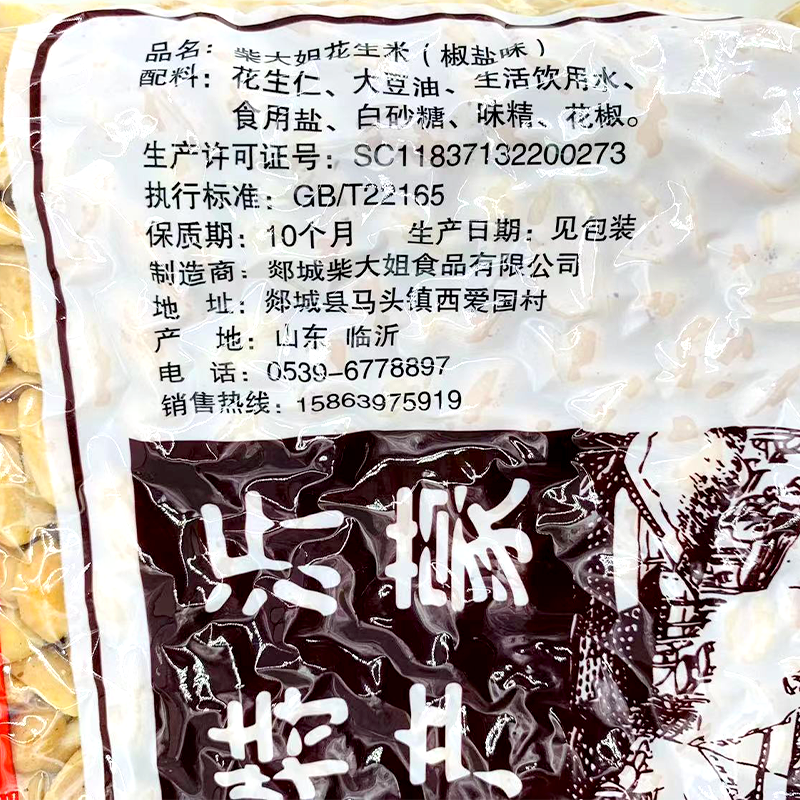 品名：柴大姐花生米（椒盐味）
配料：花生仁、大豆油、生活饮用水、
食用盐、白砂糖、味精、花椒。
生产许可证号：SC11837132200273
执行标准：GB/T22165
保质期：10个月 生产日期：见包装
制造商：郯城柴大姐食品有限公司
地 址：郯城县马头镇西爱国村
产 地：山东 临沂
电 话：0539-6778897
销售热线：15863975919
沂蒙
特产